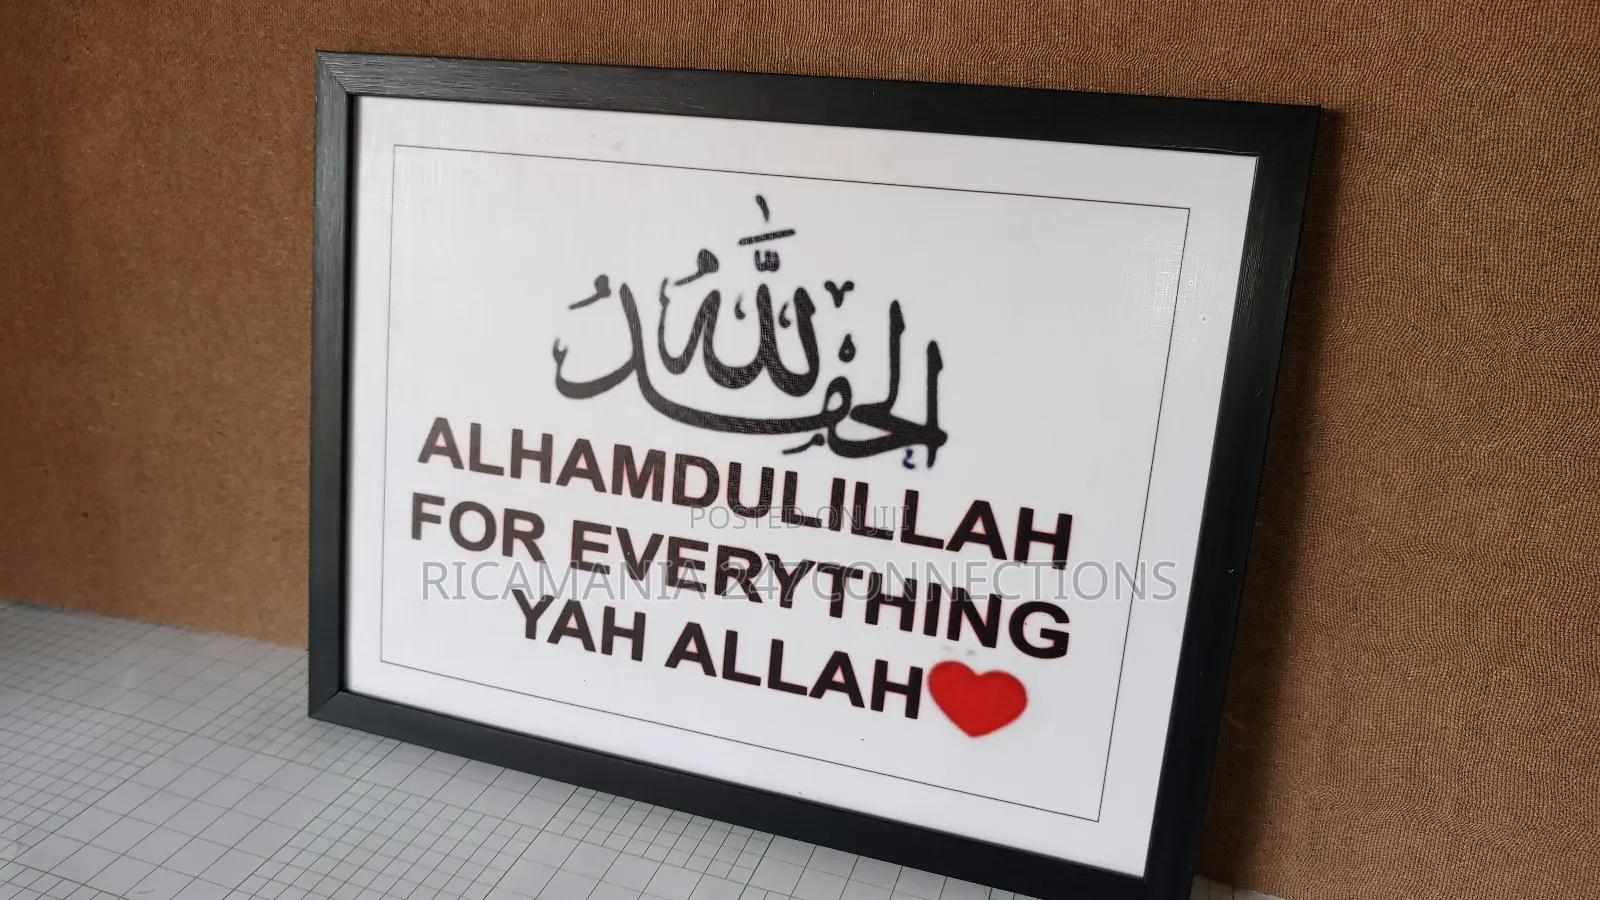 الحمد لله
ALHAMDULILLAH
FOR EVERYTHING
YAH ALLAH
POSTED ON JIJI
RICAMANIA 247CONNECTIONS